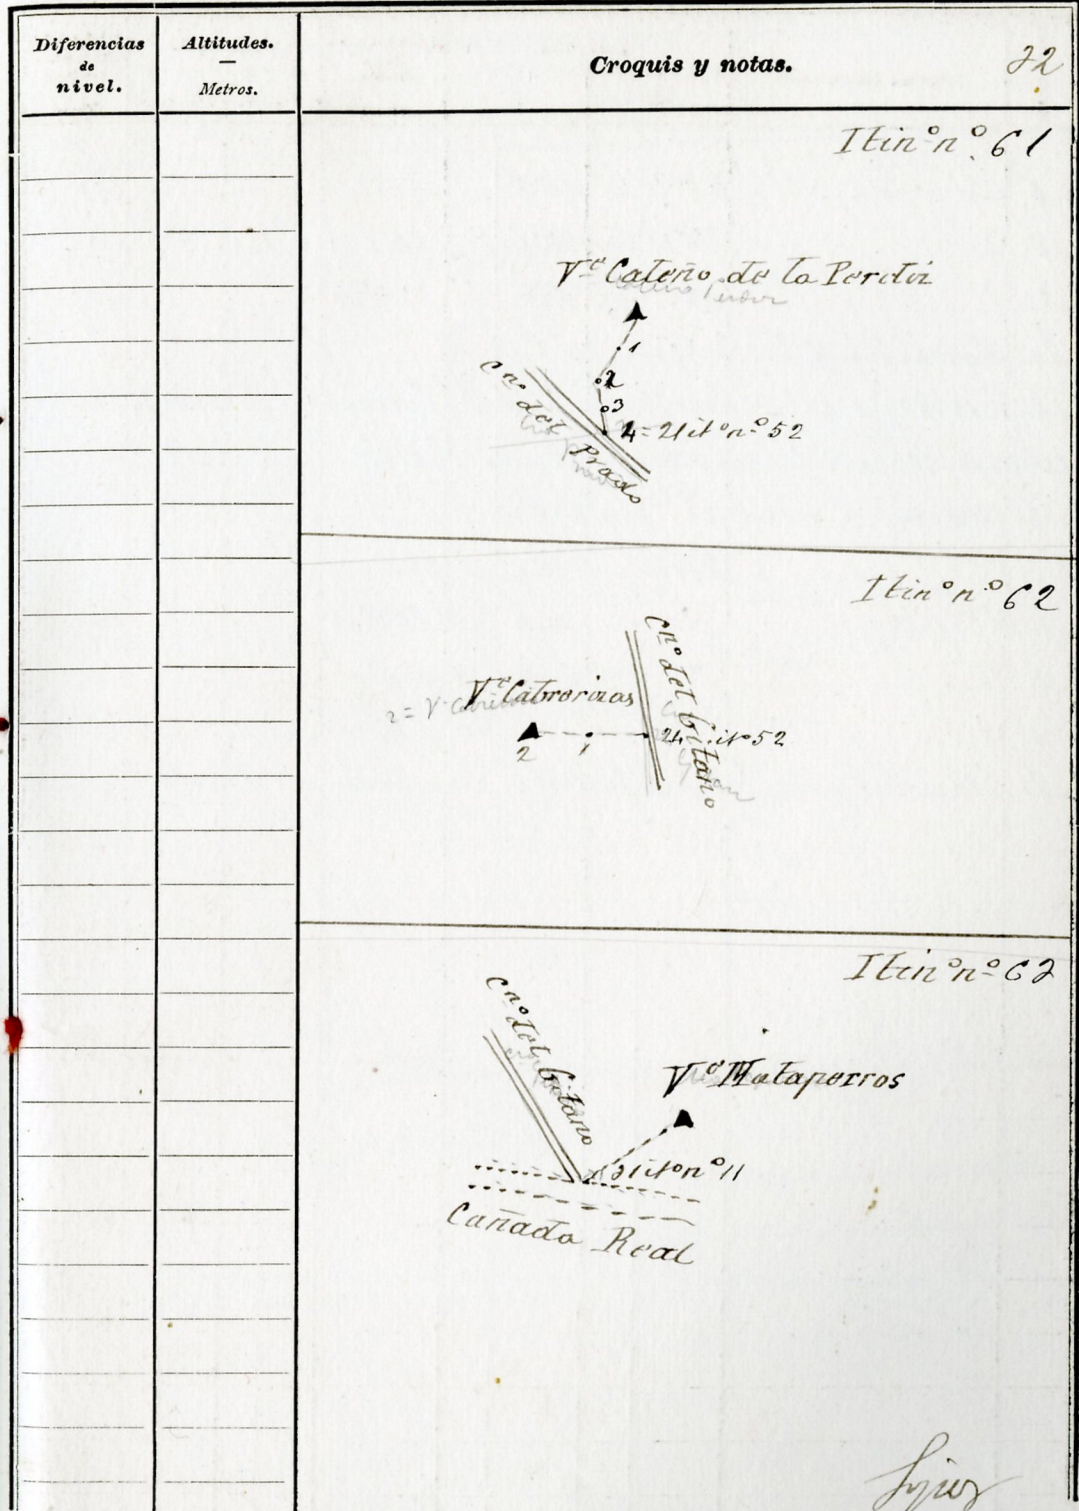 Diferencias
de
nivel.
Altitudes.
Metros.
Croquis y notas.
Itinº nº 61
Vᵉ Cateño de la
1
2
3
4 = 21 itº nº 52
Cnº del Prado
Itinº nº 62
Cnº del Gitano
Vᵉ
24 itº 52
2
1
Itinº nº
Cnº del Gitano
Vᵉ Mataperros
itº nº 11
Cañada Real